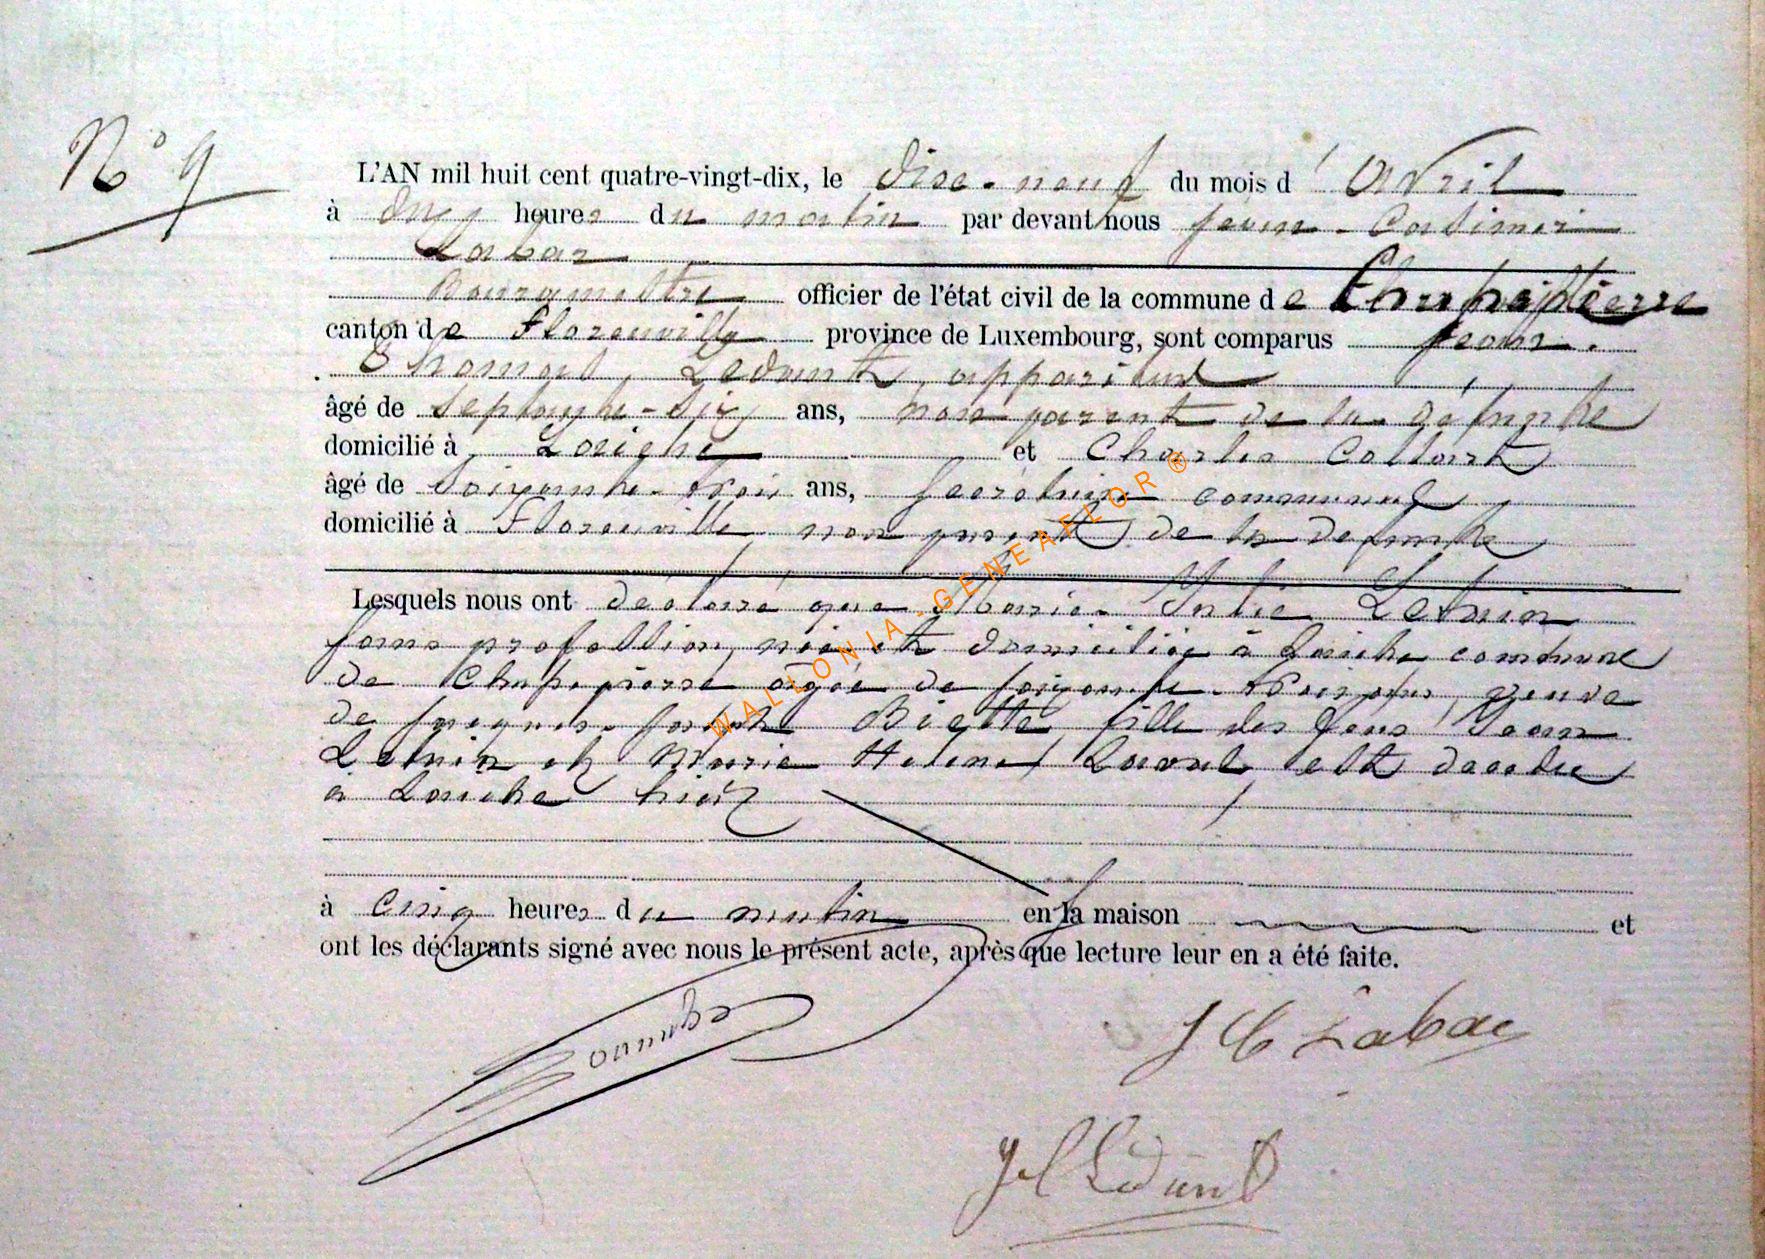 N° 9
L'AN mil huit cent quatre-vingt-dix, le dise-neuf du mois d'Avril
à heures du matin par devant nous Jean-Casimir
Labar
Bourgmestre officier de l'état civil de la commune de
canton de Florenville province de Luxembourg, sont comparus Jean.
Thomas Ledent, appariteur
âgé de septante-six ans, non parent de la défunte
domicilié à et Charles Collart
âgé de soixante-trois ans, secrétaire communal,
domicilié à Florenville non parent de la defunte
Lesquels nous ont déclaré que Marie-Julie
sans profession, née et domiciliée à commune
de âgée de soixante ans, veuve
de Jacques-Joseph fille des feus Jean
et Marie Helene est décedée
à hier
à cinq heures du matin en sa maison et
ont les déclarants signé avec nous le présent acte, après que lecture leur en a été faite.
J C Labar
Ledent
WALLONIA.GENEAFLOR®